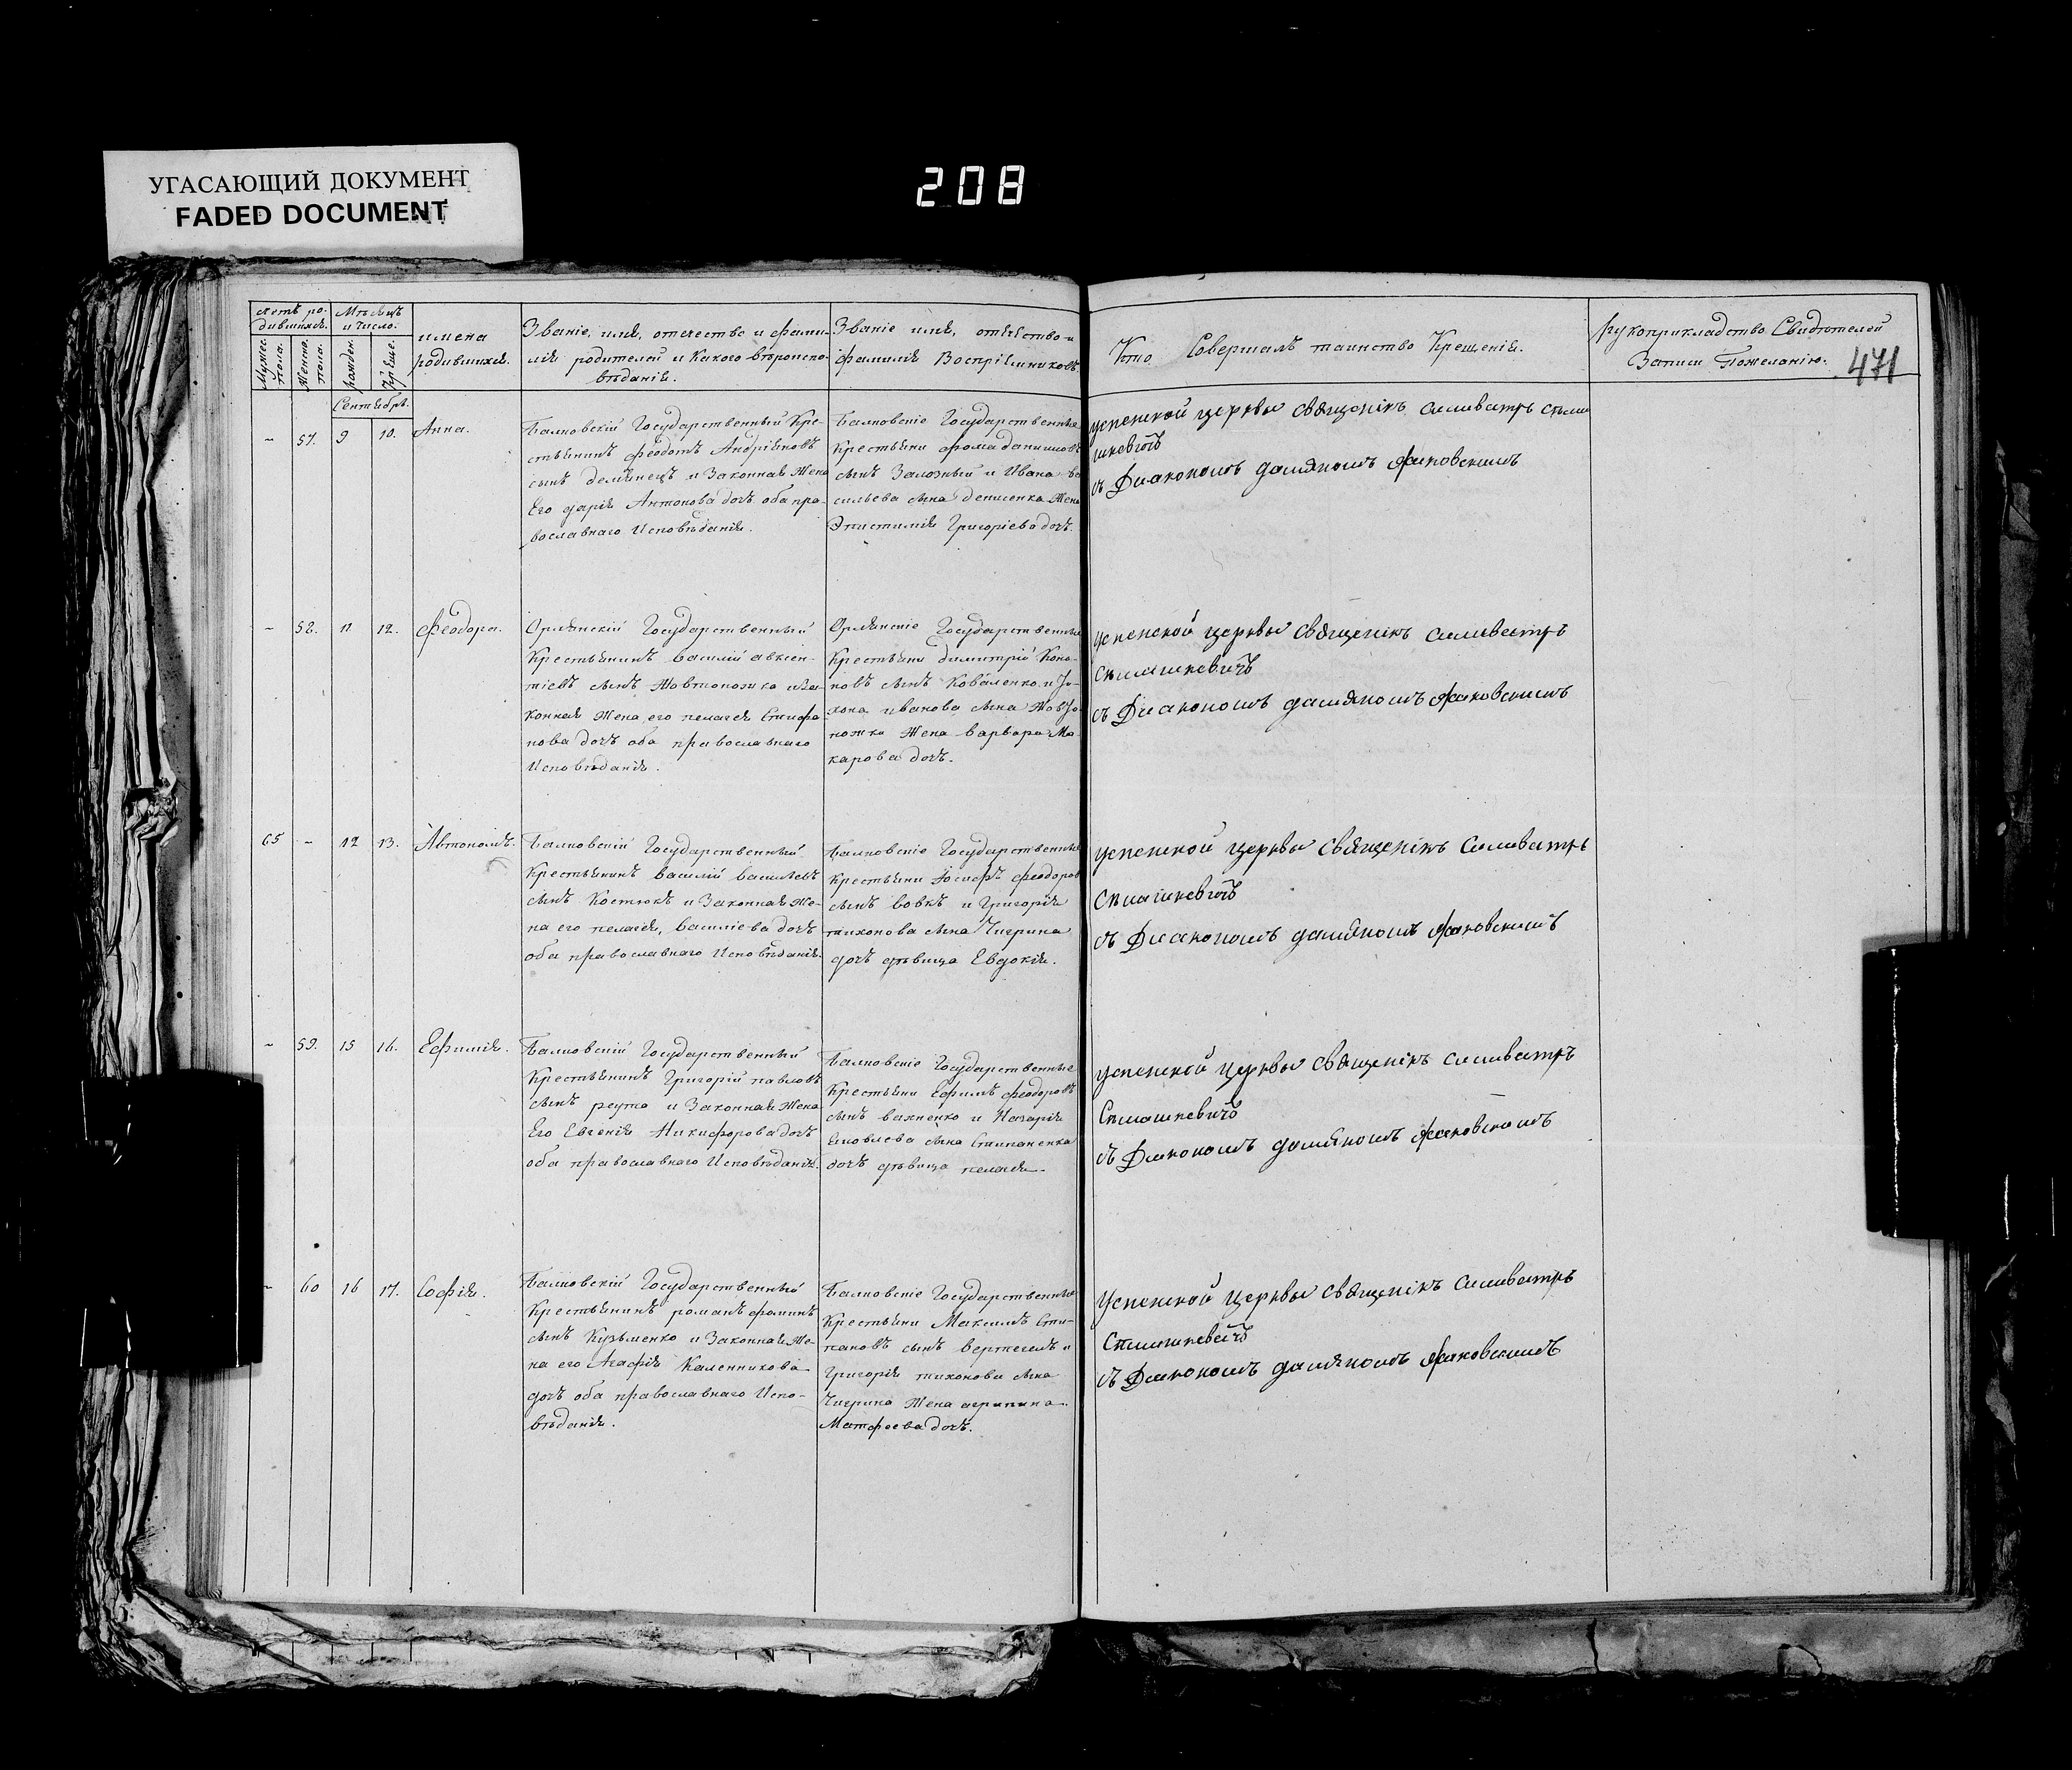 УГАСАЮЩИЙ ДОКУМЕНТ
FADED DOCUMENT
208
471
Мѣсяцъ
и число.
Мужес.
пола.
Женско.
пола.
рожден.
креще.
имена
родившихся.
Званіе, имя, отечество и фами-
лія родителей и какого вѣроиспо-
вѣданія.
Званіе имя, отечество и
фамилія Воспріемниковъ.
Кто Совершалъ таинство Крещенія.
рукоприкладство Свидѣтелей
Записи Пожеланію.
Сентябрь.
- 57. 9 10. Анна.
Балковскій Государственный Кре-
стьянинъ феодотъ Андріяновъ
сынъ демянецъ и Законная Жена
Его дарія Антонова дочь оба пра-
вославнаго Исповѣданія.
Балковскіе Государственные
Крестьяни фома
сынъ Залозный и Ивана ва
сильева сына денисенка Жена
Эпистимія Григоріева дочь.
успенской церквы священікъ силивестръ
съ Диакономъ даміяномъ
- 58. 11 12. феодора.
Орлянскій Государственный
Крестьянинъ василій авксен-
тіевъ сынъ Жовтоножка и За-
конная Жена его пелагея Стефа
нова дочь оба православнаго
Исповѣданія.
Орлянскіе Государственные
Крестьяни димитрій Коно-
новъ сынъ Коваленко и
ивавова сына
ножки Жена варвара Ма-
карова дочь.
успенской церквы священікъ силивестръ
съ Диакономъ даміяномъ
65 - 12 13. Автономъ.
Балковскій Государственный
Крестьянинъ василій васильевъ
сынъ Костюкъ и Законная Же-
на его пелагія, василіева дочь
оба православнаго Исповѣданія.
Балковскіе Государственные
Крестьяни Іосифъ феодоров
сынъ вовкъ и Григорія
тихонова сына Чигрина
дочь дѣвица Евдокія.
успенской церквы священікъ Силивестръ
съ Диакономъ даміяномъ
- 59. 15 16. Ефимія.
Балковскій Государственный
Крестьянинъ Григорій павловъ
сынъ реута и Законная Жена
Его Евгенія Никифорова дочь
оба православнаго Исповѣданія.
Балковскіе Государственные
Крестьяни Ефимъ феодоровъ
сынъ вахненко и Назарія
яковлева сына Степаненка
дочь дѣвица пелагія.
успенской церквы священікъ силивестръ
съ Диакономъ даміяномъ
- 60 16 17. Софія.
Балковскій Государственный
Крестьянинъ романъ фоминъ
сынъ Кузьменко и Законная Же-
на его Агафія Каленникова
дочь оба православнаго Испо-
вѣданія.
Балковскіе Государственные
Крестьяни Максимъ Сте-
пановъ сынъ вертегелъ и
Григорія тихонова сына
Чигрина Жена агрипина
Матфеева дочь.
Успенской Церквы священікъ силивестръ
съ Диакономъ даміяномъ